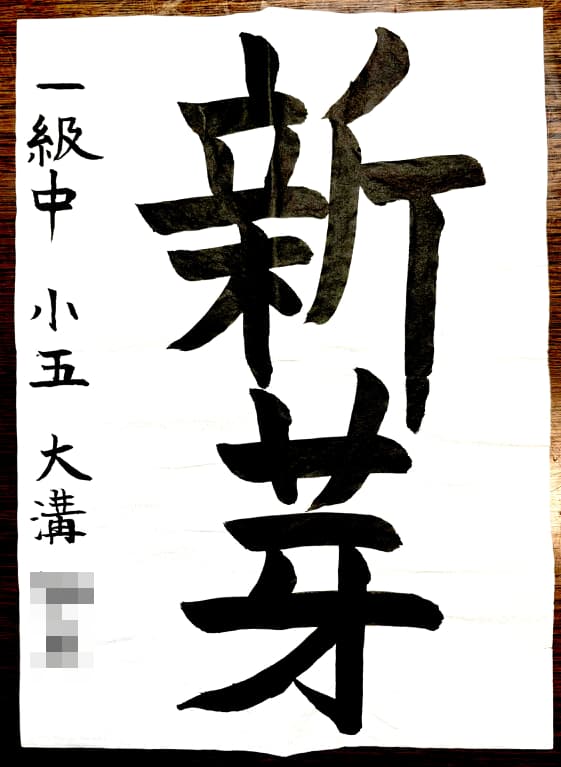 新芽
一級中 小五 大溝